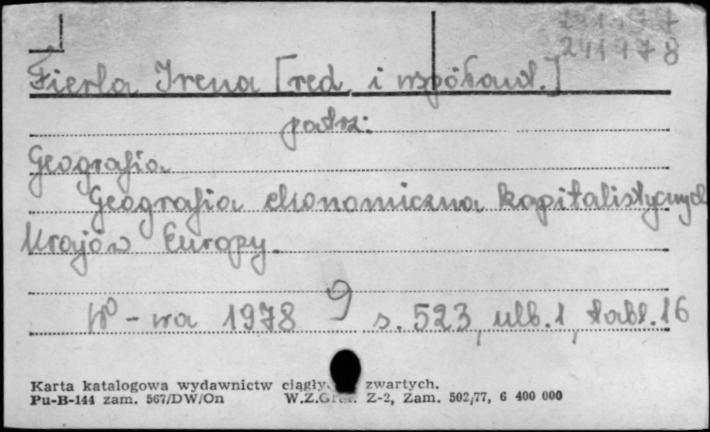 241477
241478
Fierla Irena [red. i współaut.]
patrz:
Geografia
Geografia ekonomiczna kapitalistycznych
Krajów Europy.
W-wa 1978 9 s. 523, ulb. 1, tabl. 16
Karta katalogowa wydawnictw zwartych.
Pu-B-144 zam. 567/DW/On W.Z.Graf. Z-2, Zam. 502/77, 6 400 000